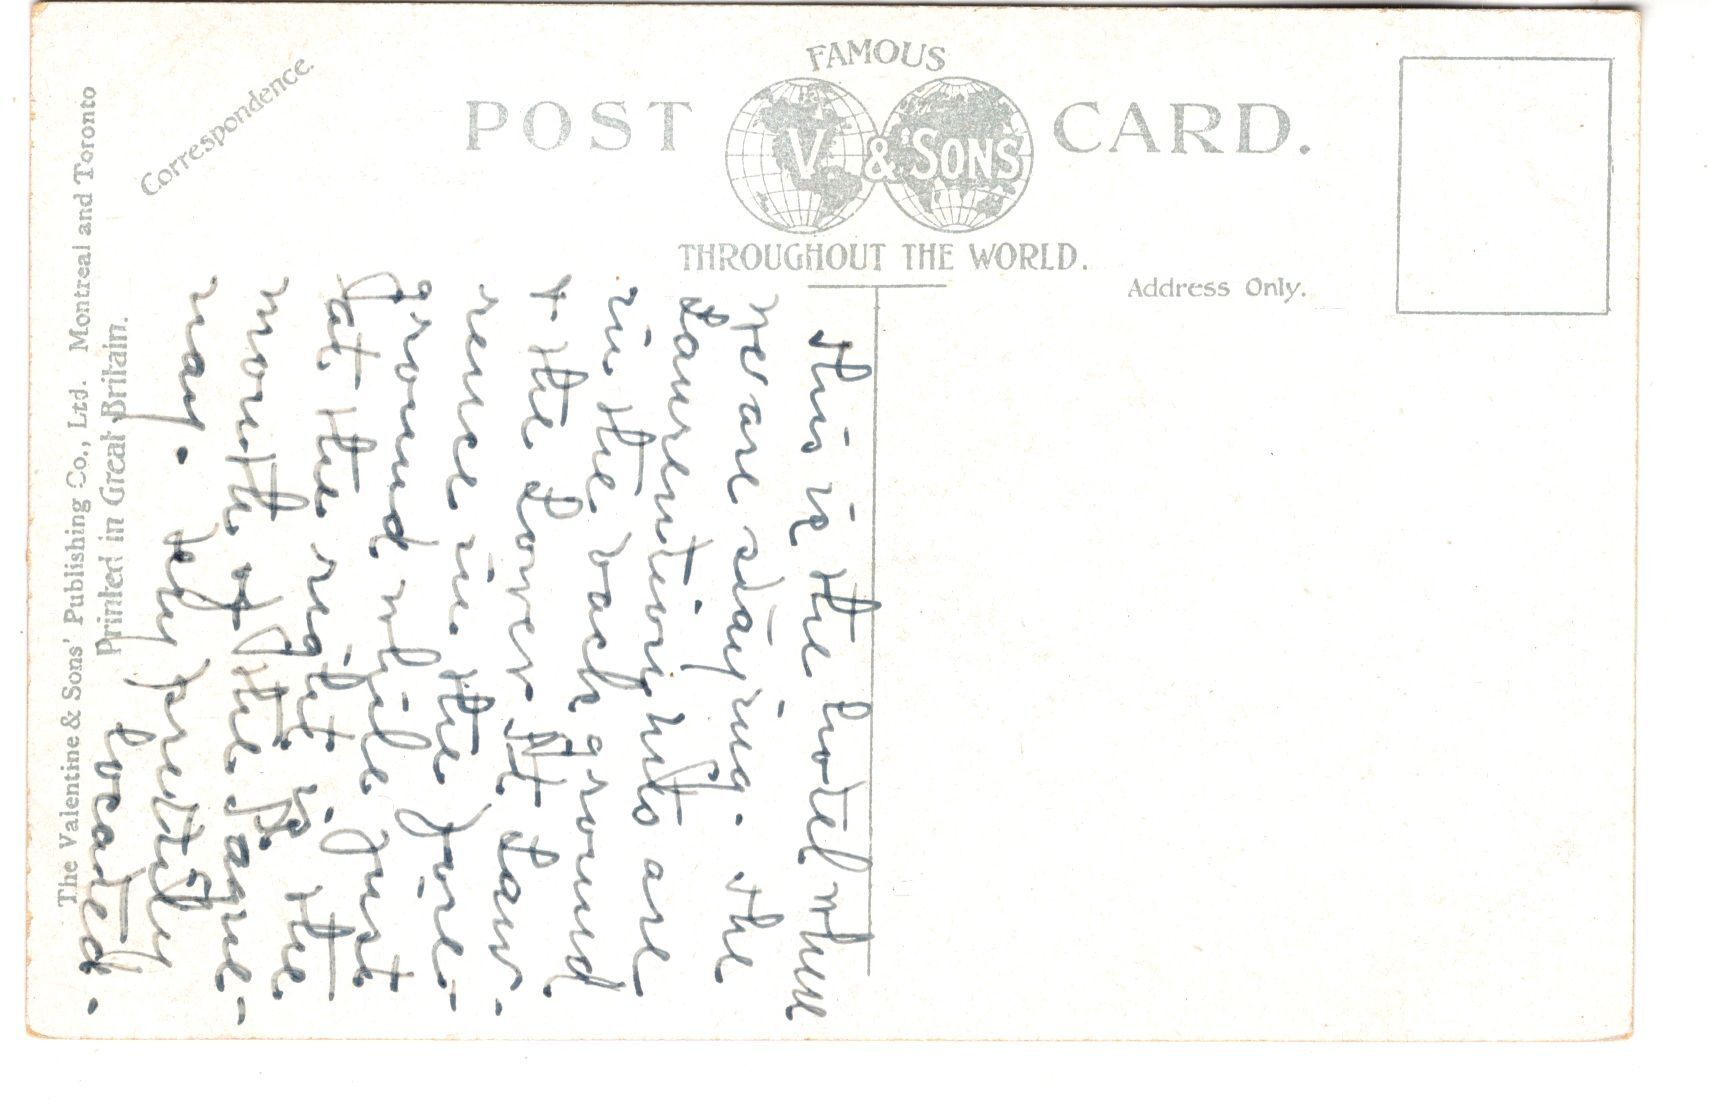 FAMOUS
POST V. & SONS CARD.
THROUGHOUT THE WORLD.
Correspondence.
Address Only.
The Valentine & Sons' Publishing Co., Ltd. Montreal and Toronto
Printed in Great Britain.
This is the hotel where
we are staying. The
Laurentiong Mts are
in the back ground
+ the Lower St Law-
rence in the fore-
ground while just
at the right is the
mouth of the Sague-
nay. Very prettily
located.